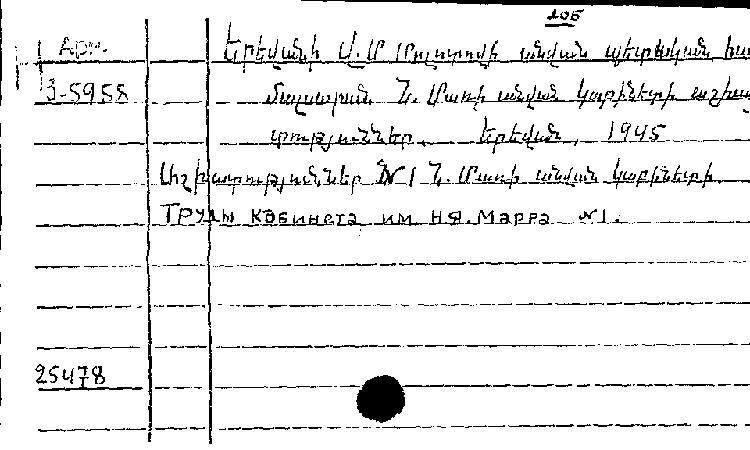 Арм.
3-5958
Երեվանի Վ. Մ. Մոլոտովի անվան պետական հա
մալսարան. Ն. Մառի անվան կաբինետի աշխա
տություններ. Երեվան, 1945
Աշխատություններ №1 Ն. Մառի անվան կաբինետի.
Труды кабинета им Н.Я. Марра №1.
25478